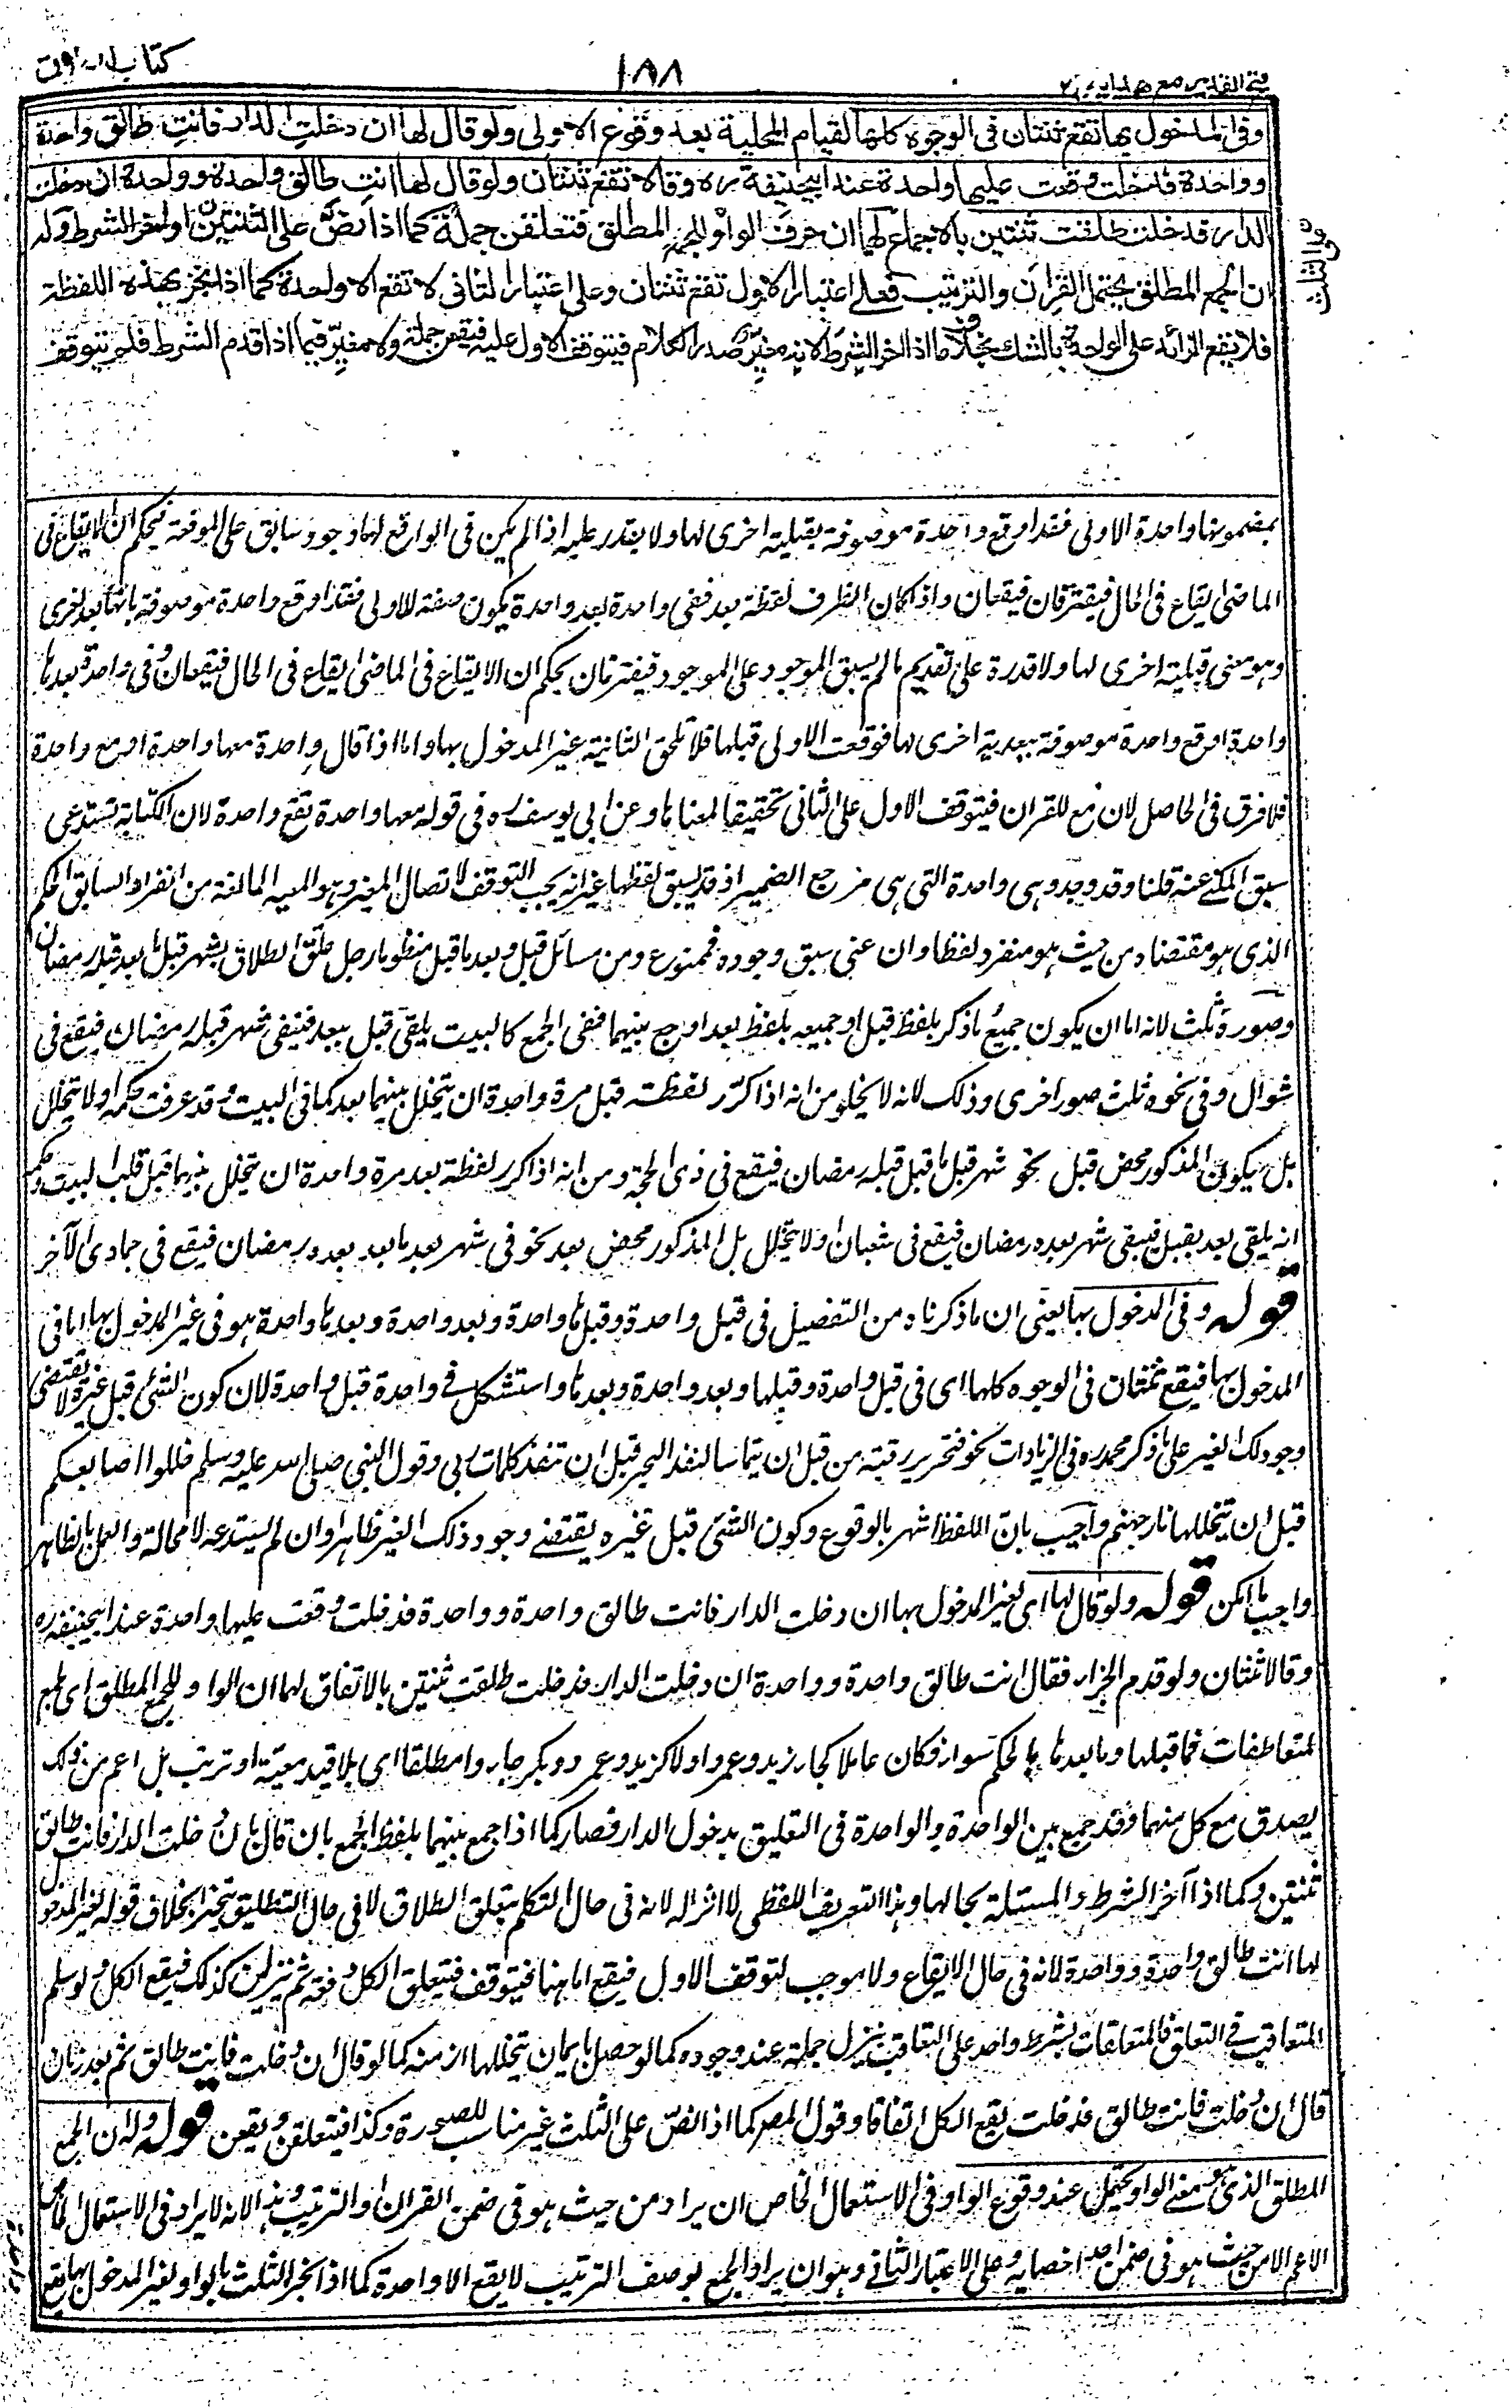 كتاب الطلاق
١٨٨
فتح القدير مع هدايه ج ٢
وفي المدخول بها تقع ثنتان في الوجوه كلها لقيام المحلية بعد وقوع الاولى ولو قال لها ان دخلتِ الدار فانتِ طالق واحدة
وواحدة فدخلت وقعت عليها واحدة عند ابيحنيفة ره وقالا تقع ثنتان ولو قال لها انتِ طالق واحدة وواحدة ان دخلت
الدار فدخلت طلقت ثنتين بالاجماع لهما ان حرف الواو للجمع المطلق فتعلقن جملة كما اذا نصّ على الثنتين او اخر الشرط وله
ان الجمع المطلق يحتمل القِران والترتيب فعلى اعتبار الاول تقع ثنتان وعلى اعتبار الثاني لا تقع الا واحدة كما اذا نجز بهذه اللفظة
فلا يقع الزائد على الواحدة بالشك بخلاف ما اذا اخر الشرط لانه مغيّر صدر الكلام فيتوقف الاول عليه فيقعن جملة ولا مغيّر فيما اذا قدم الشرط فلم يتوقف
بمضمونها واحدة الاولى فقد اوقع واحدة موصوفة بقبلية اخرى لها ولا يقدر عليه اذا لم يكن في الواقع لها وجود سابق على الموقعة فيحكم ان الايقاع في
الماضى ايقاع في الحال فيقترنان فيقعان واذا كان الظرف لفظة بعد ففى واحدة بعد واحدة يكون صفة للاولى فقد اوقع واحدة موصوفة بانها بعد اخرى
وهو معنى قبلية اخرى لها ولا قدرة على تقديم ما لم يسبق الموجود على الموجود فيقترنان بحكم ان الايقاع في الماضى ايقاع في الحال فيقعان وفى واحدة بعدها
واحدة اوقع واحدة موصوفة ببعدية اخرى لها فوقعت الاولى قبلها فلا تلحق الثانية غير المدخول بها واما اذا قال واحدة معها واحدة او مع واحدة
فلا فرق في الحاصل لان مع للقران فيتوقف الاول على الثانى تحقيقا لمعناها وعن ابى يوسف ره في قوله معها واحدة تقع واحدة لان الكناية تستدعى
سبق المكنى عنه قلنا وقد وجد وهى واحدة التى هى مرجع الضمير اذ قد سبق لفظها غير انه يجب التوقف لاتصال المغير وهو المعية المانعة من انفراد السابق بالحكم
الذى هو مقتضاه من حيث هو منفرد لفظا وان عنى سبق وجوده فممنوع ومن مسائل قبل وبعد ما قيل منظوما رجل علّق الطلاق بشهر قبل ما بعد قبله رمضان
وصوره ثلث لانه اما ان يكون جميع ما ذكر بلفظ قبل او جميعه بلفظ بعد او جمع بينهما ففى الجمع كالبيت يلقى قبل ببعد فيبقى شهر قبله رمضان فيقع في
شوال وفى نحوه ثلث صور اخرى وذلك لانه لا يخلو من انه اذا كرّر لفظة قبل مرة واحدة ان يتخلل بينهما بعد كما في البيت وقد عرفت حكمه او لا يتخلل
بل يكون المذكور محض قبل نحو شهر قبل ما قبل قبله رمضان فيقع في ذى الحجة ومن انه اذا كرر لفظة بعد مرة واحدة ان يتخلل بينهما قبل قلب البيت وحكمه
انه يلقى بعد بقبل فيبقى شهر بعده رمضان فيقع في شعبان ولا يتخلل بل المذكور محض بعد نحو في شهر بعد ما بعد بعده رمضان فيقع في جمادى الآخر
قوله وفى المدخول بها يعنى ان ما ذكرناه من التفصيل في قبل واحدة وقبلها واحدة وبعد واحدة وبعدها واحدة هو في غير المدخول بها اما في
المدخول بها فيقع ثنتان في الوجوه كلها اى في قبل واحدة وقبلها وبعد واحدة وبعدها واستشكل في واحدة قبل واحدة لان كون الشئ قبل غيره لا يقتضى
وجود ذلك الغير على ما ذكر محمد ره في الزيادات نحو فتحرير رقبة من قبل ان يتماسا لنفد البحر قبل ان تنفد كلمات ربى وقول النبى صلى الله عليه وسلم خللوا اصابعكم
قبل ان يتخللها نار جهنم واجيب بان اللفظ اشهر بالوقوع وكون الشئ قبل غيره يقتضى وجود ذلك الغير ظاهرا وان لم يستدعه لا محالة والعمل بالظاهر
واجب ما امكن قوله ولو قال لها اى لغير المدخول بها ان دخلت الدار فانت طالق واحدة وواحدة فدخلت وقعت عليها واحدة عند ابيحنيفة ره
وقالا ثنتان ولو قدم الجزاء فقال انت طالق واحدة وواحدة ان دخلت الدار فدخلت طلقت ثنتين بالاتفاق لهما ان الواو للجمع المطلق اى لجمع
المتعاطفات فما قبلها وما بعدها بالحكم سواء فكان عاملا كجاء زيد وعمرو اولا كزيد وعمرو وبكر جاءوا مطلقا اى بلا قيد معيّة او ترتيب بل اعم من ذلك
يصدق مع كل منهما وقد جمع بين الواحدة والواحدة في التعليق بدخول الدار فصار كما اذا جمع بينهما بلفظ الجمع بان قال ان دخلت الدار فانت طالق
ثنتين وكما اذا آخر الشرط والمسئلة بحالها وهذا التعريف اللفظى لا اثر له لانه في حال التكلم بتعلق الطلاق لا في حال التطليق بتنجز بخلاف قوله لغير المدخول
لها انت طالق واحدة وواحدة لانه في حال الايقاع ولا موجب لتوقف الاول فيقع اما هنا فيتوقف فيتعلق الكل دفعة ثم ينزلن كذلك فيقع الكل ولو سلم
التعاقب في التعلق فالمتعلقات بشرط واحد على التعاقب ينزل جملة عند وجوده كما لو حصل بايمان يتخللها ازمنة كما لو قال ان دخلت فانت طالق ثم بعد زمان
قال ان دخلت فانت طالق فدخلت يقع الكل اتفاقا وقول المص كما اذا نصّ على الثلث غير مناسب للصورة وكذا فيتعلقن ويقعن قوله وله ان الجمع
المطلق الذى هو معنى الواو يحتمل عند وقوع الواو فى الاستعمال الخاص ان يراد من حيث هو في ضمن القران او الترتيب وهذا لانه لا يراد فى الاستعمال الخاص
الاعم الا من حيث هو فى ضمن احد اخصائه وعلى الاعتبار الثانى وهو ان يراد الجمع بوصف الترتيب لا يقع الا واحدة كما اذا نجز الثلث بالواو لغير المدخول بها يقع